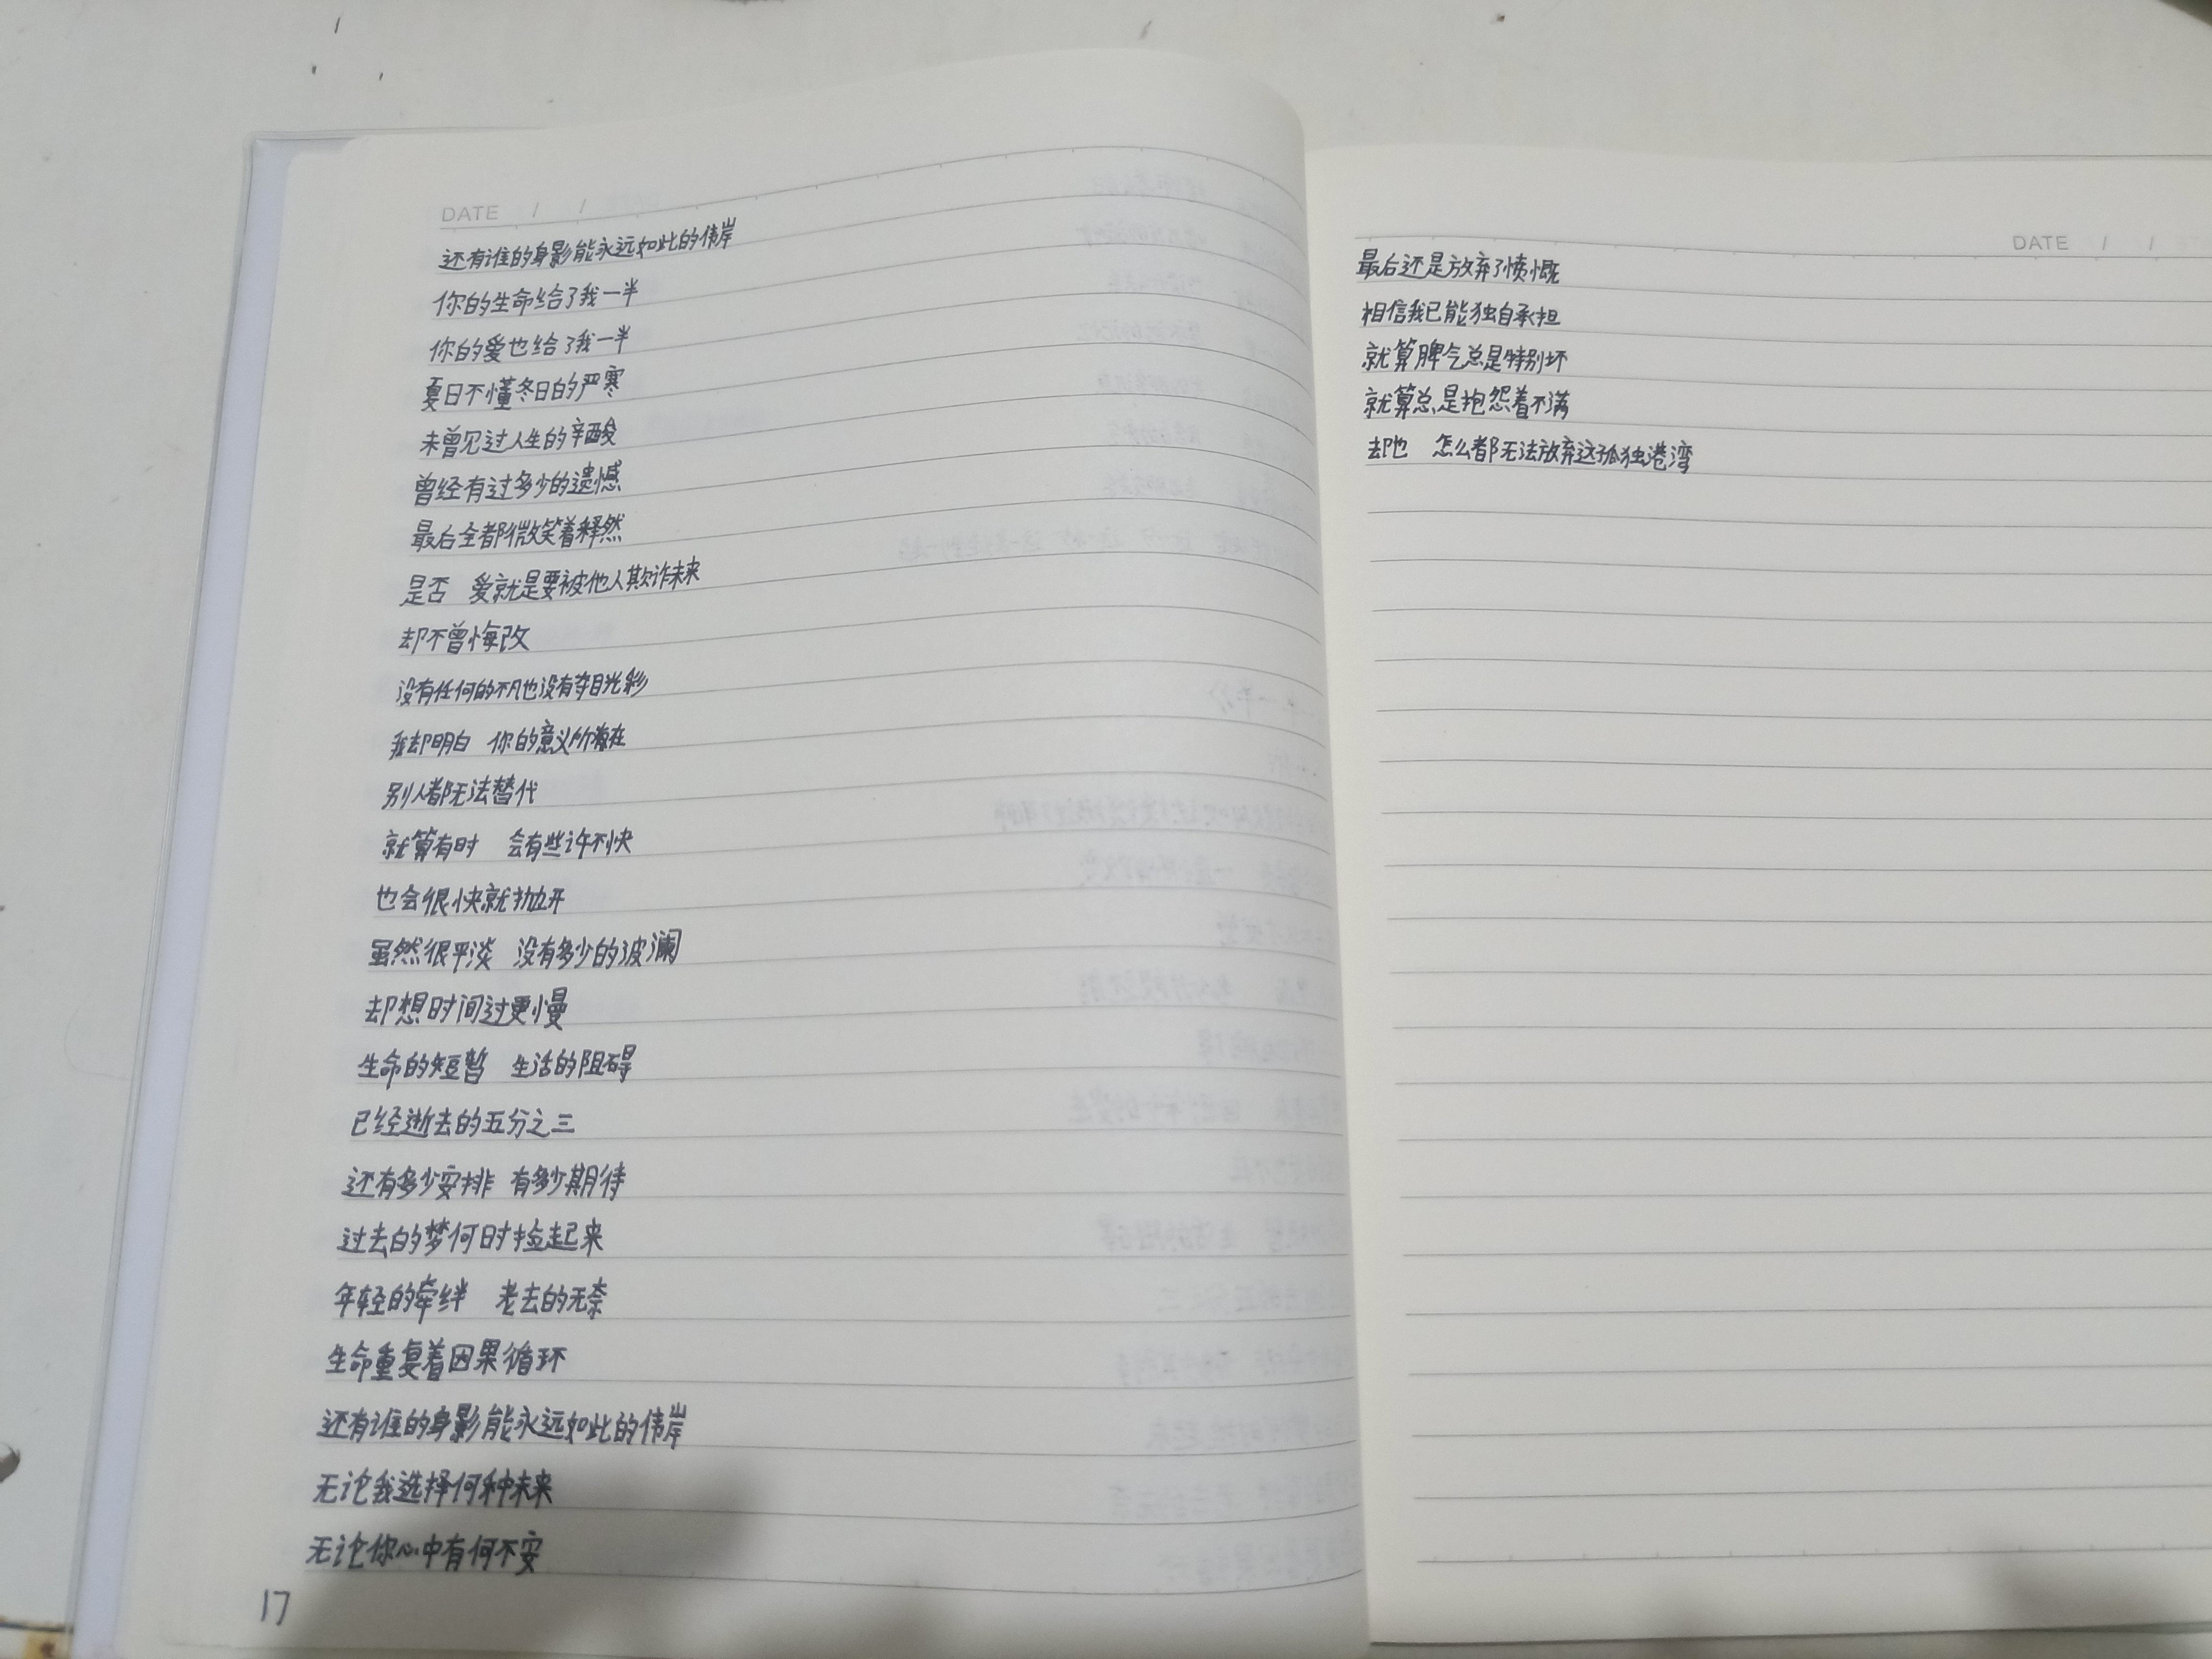 DATE / /
还有谁的身影能永远如此的伟岸
你的生命给了我一半
你的爱也给了我一半
夏日不懂冬日的严寒
未曾见过人生的辛酸
曾经有过多少的遗憾
最后全都微笑着释然
是否 爱就是要被他人欺诈未来
却不曾悔改
没有任何的不凡也没有夺目光彩
我却明白 你的意义所在
别人都无法替代
就算有时 会有些许不快
也会很快就抛开
虽然很平淡 没有多少的波澜
却想时间过更慢
生命的短暂 生活的阻碍
已经逝去的五分之三
还有多少安排 有多少期待
过去的梦何时捡起来
年轻的牵绊 老去的无奈
生命重复着因果循环
还有谁的身影能永远如此的伟岸
无论我选择何种未来
无论你心中有何不安
17
DATE / /
最后还是放弃了愤慨
相信我已能独自承担
就算脾气总是特别坏
就算总是抱怨着不满
却也 怎么都无法放弃这孤独港湾